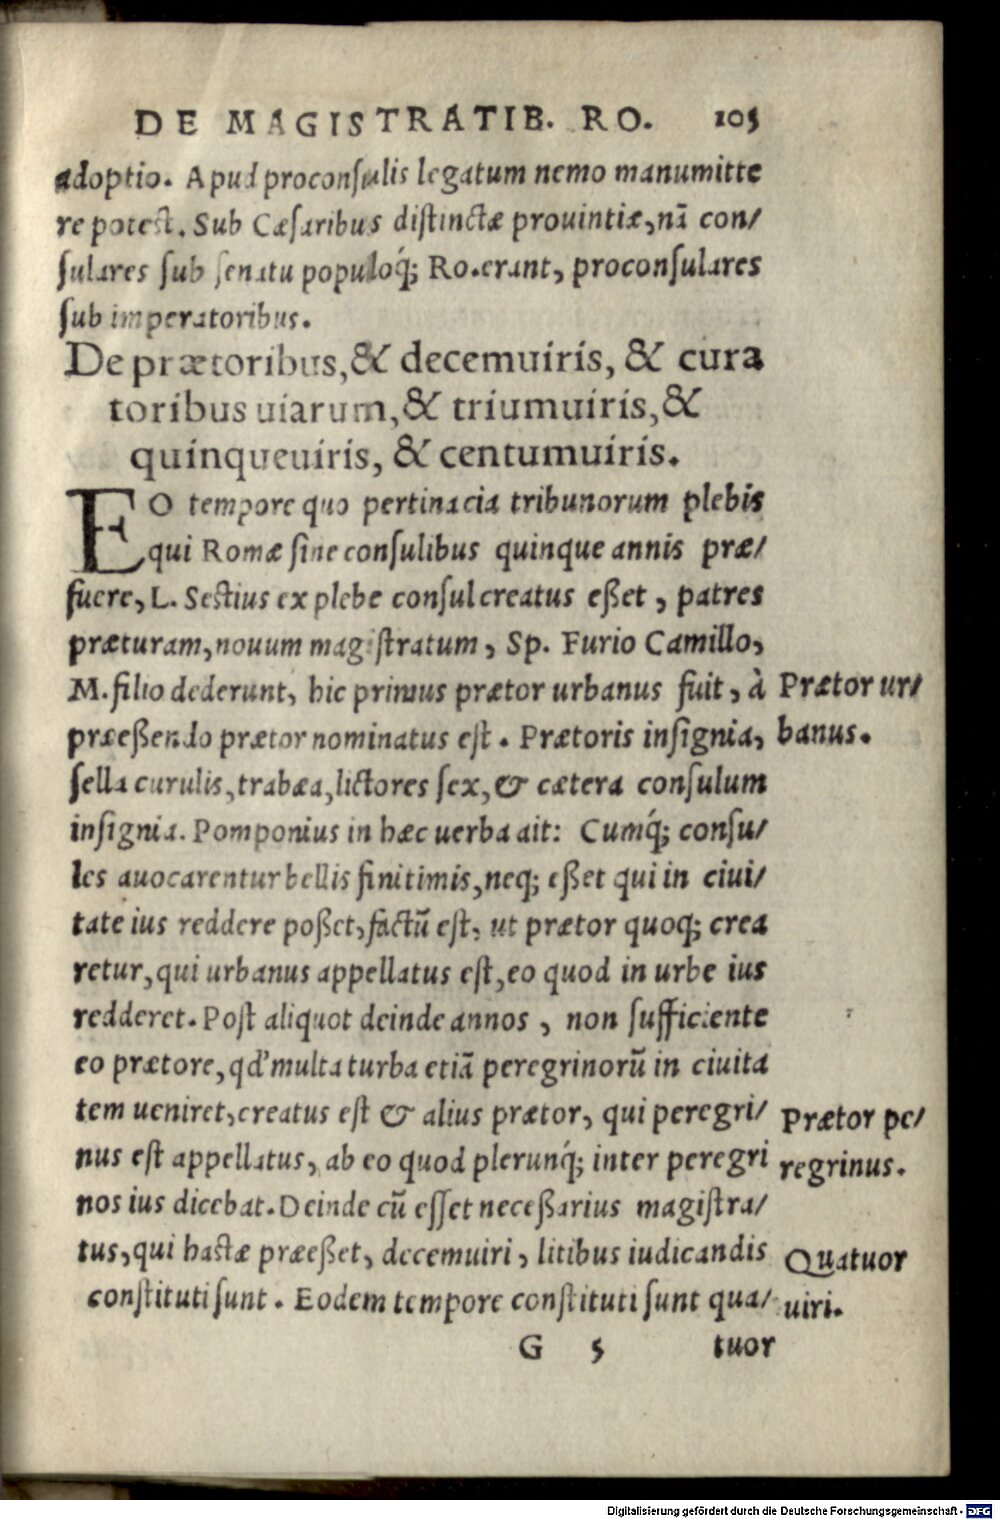 DE MAGISTRATIB. RO. 105
adoptio. Apud proconſulis legatum nemo manumitte
re poteſt. Sub Cæſaribus diſtinctæ prouintiæ, nā con/
ſulares ſub ſenatu populoq́; Ro. erant, proconſulares
ſub imperatoribus.
De prætoribus, & decemuiris, & cura
toribus uiarum, & triumuiris, &
quinqueuiris, & centumuiris.
EO tempore quo pertinacia tribunorum plebis
qui Romæ ſine conſulibus quinque annis præ/
fuere, L. Seſtius ex plebe conſul creatus eßet, patres
præturam, nouum magiſtratum, Sp. Furio Camillo,
M. filio dederunt, hic primus prætor urbanus fuit, à
Prætor ur/
præeßendo prætor nominatus eſt. Prætoris inſignia,
banus.
ſella curulis, trabæa, lictores ſex, & cætera conſulum
inſignia. Pomponius in hæc uerba ait: Cumq́; conſu/
les auocarentur bellis finitimis, neq; eßet qui in ciui/
tate ius reddere poßet, factū eſt, ut prætor quoq; crea
retur, qui urbanus appellatus eſt, eo quod in urbe ius
redderet. Poſt aliquot deinde annos, non ſufficiente
eo prætore, qd' multa turba etiā peregrinorū in ciuita
tem ueniret, creatus eſt & alius prætor, qui peregri/
Prætor pe/
nus eſt appellatus, ab eo quod plerunq́; inter peregri
regrinus.
nos ius dicebat. Deinde cū eſſet neceßarius magiſtra/
tus, qui haſtæ præeßet, decemuiri, litibus iudicandis
Quatuor
conſtituti ſunt. Eodem tempore conſtituti ſunt qua/
uiri.
G 5 tuor
Digitalisierung gefördert durch die Deutsche Forschungsgemeinschaft - DFG